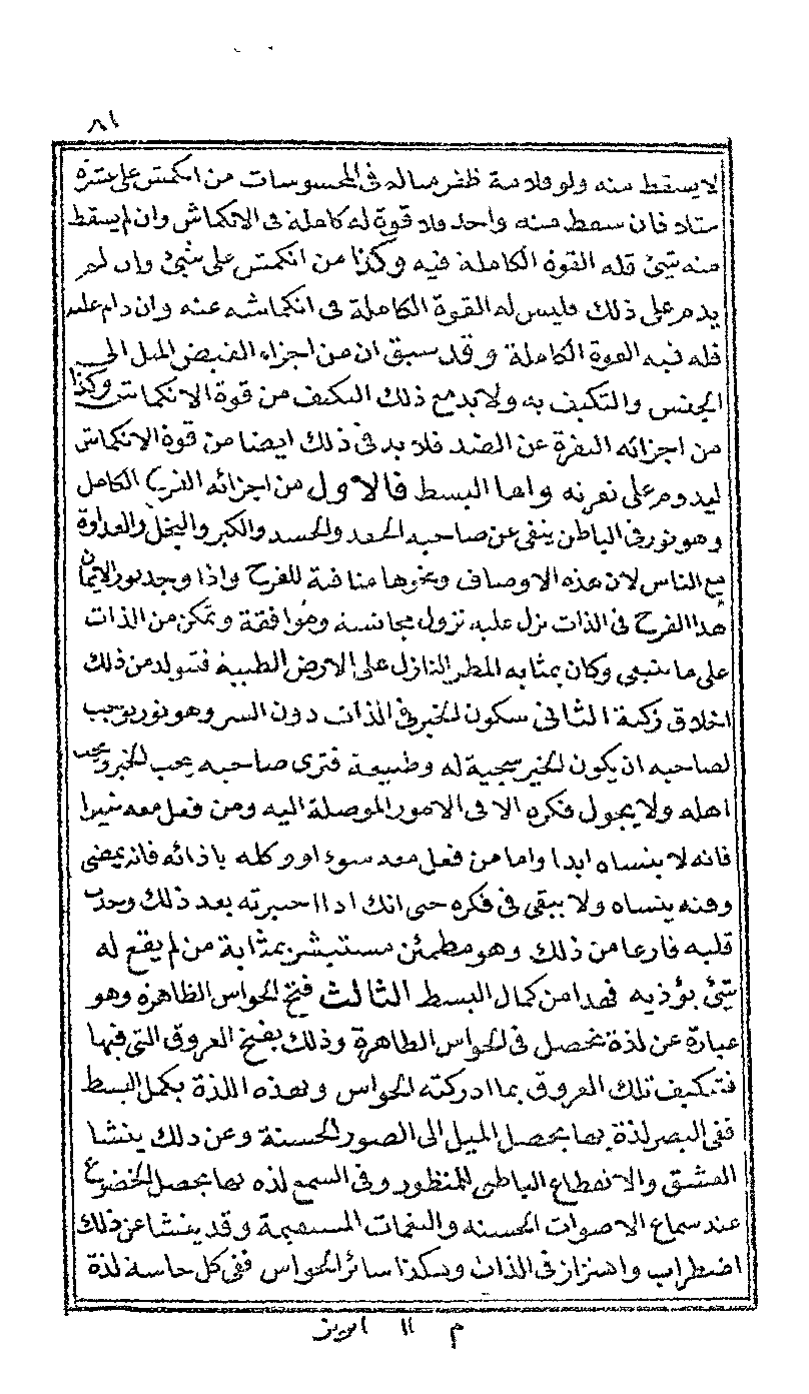 ٨١
لا يسقط منه ولو قلامة ظفر مثاله فى المحسوسات من انكمش على عشرة
مثلا فان سقط منه واحد فلا قوة له كاملة فى الانكماش وان لم يسقط
منه شئ فله القوة الكاملة فيه وكذا من انكمش على شئ وان لم
يدم على ذلك فليس له القوة الكاملة فى انكماشه عنه وان دام عليه
فله فيه القوة الكاملة وقد سبق ان من اجزاء القبض الميل الى
الجنس والتكيف به ولا بد مع ذلك التكيف من قوة الانكماش وكذا
من اجزائه النفرة عن الضد فلا بد فى ذلك ايضا من قوة الانكماش
ليدوم على نفرته واما البسط فالاول من اجزائه الفرح الكامل
وهو نور فى الباطن ينفى عن صاحبه الحقد والحسد والكبر والبخل والعداوة
مع الناس لان هذه الاوصاف ونحوها منافية للفرح واذا وجد نور الايمان
هذا الفرح فى الذات نزل عليه نزول مجانسة وموافقة وتمكن من الذات
على ما ينبغى وكان بمثابة المطر النازل على الارض الطيبة فتتولد من ذلك
اخلاق زكية الثانى سكون الخير فى الذات دون الشر وهو نور يوجب
لصاحبه ان يكون الخير سجية له وطبيعة فترى صاحبه يحب الخير ويحب
اهله ولا يجول فكره الا فى الامور الموصلة اليه ومن فعل معه خيرا
فانه لا ينساه ابدا واما من فعل معه سوء او وكله باذائه فانه يمضى
وقته ينساه ولا يبقى فى فكره حتى انك اذا اختبرته بعد ذلك وجدت
قلبه فارغا من ذلك وهو مطمئن مستبشر بمثابة من لم يقع له
شئ يؤذيه فهذا من كمال البسط الثالث فتح الحواس الظاهرة وهو
عبارة عن لذة تحصل فى الحواس الظاهرة وذلك بفتح العروق التى فيها
فتتكيف تلك العروق بما ادركته الحواس وبهذه اللذة يكمل البسط
ففى البصر لذة بها يحصل الميل الى الصور الحسنة وعن ذلك ينشا
العشق والانقطاع الباطنى للمنظور وفى السمع لذة بها يحصل الخضوع
عند سماع الاصوات الحسنه والنغمات المستقيمة وقد ينشا عن ذلك
اضطراب واهتزاز فى الذات وهكذا سائر الحواس ففى كل حاسة لذة
م ١١ ابريز